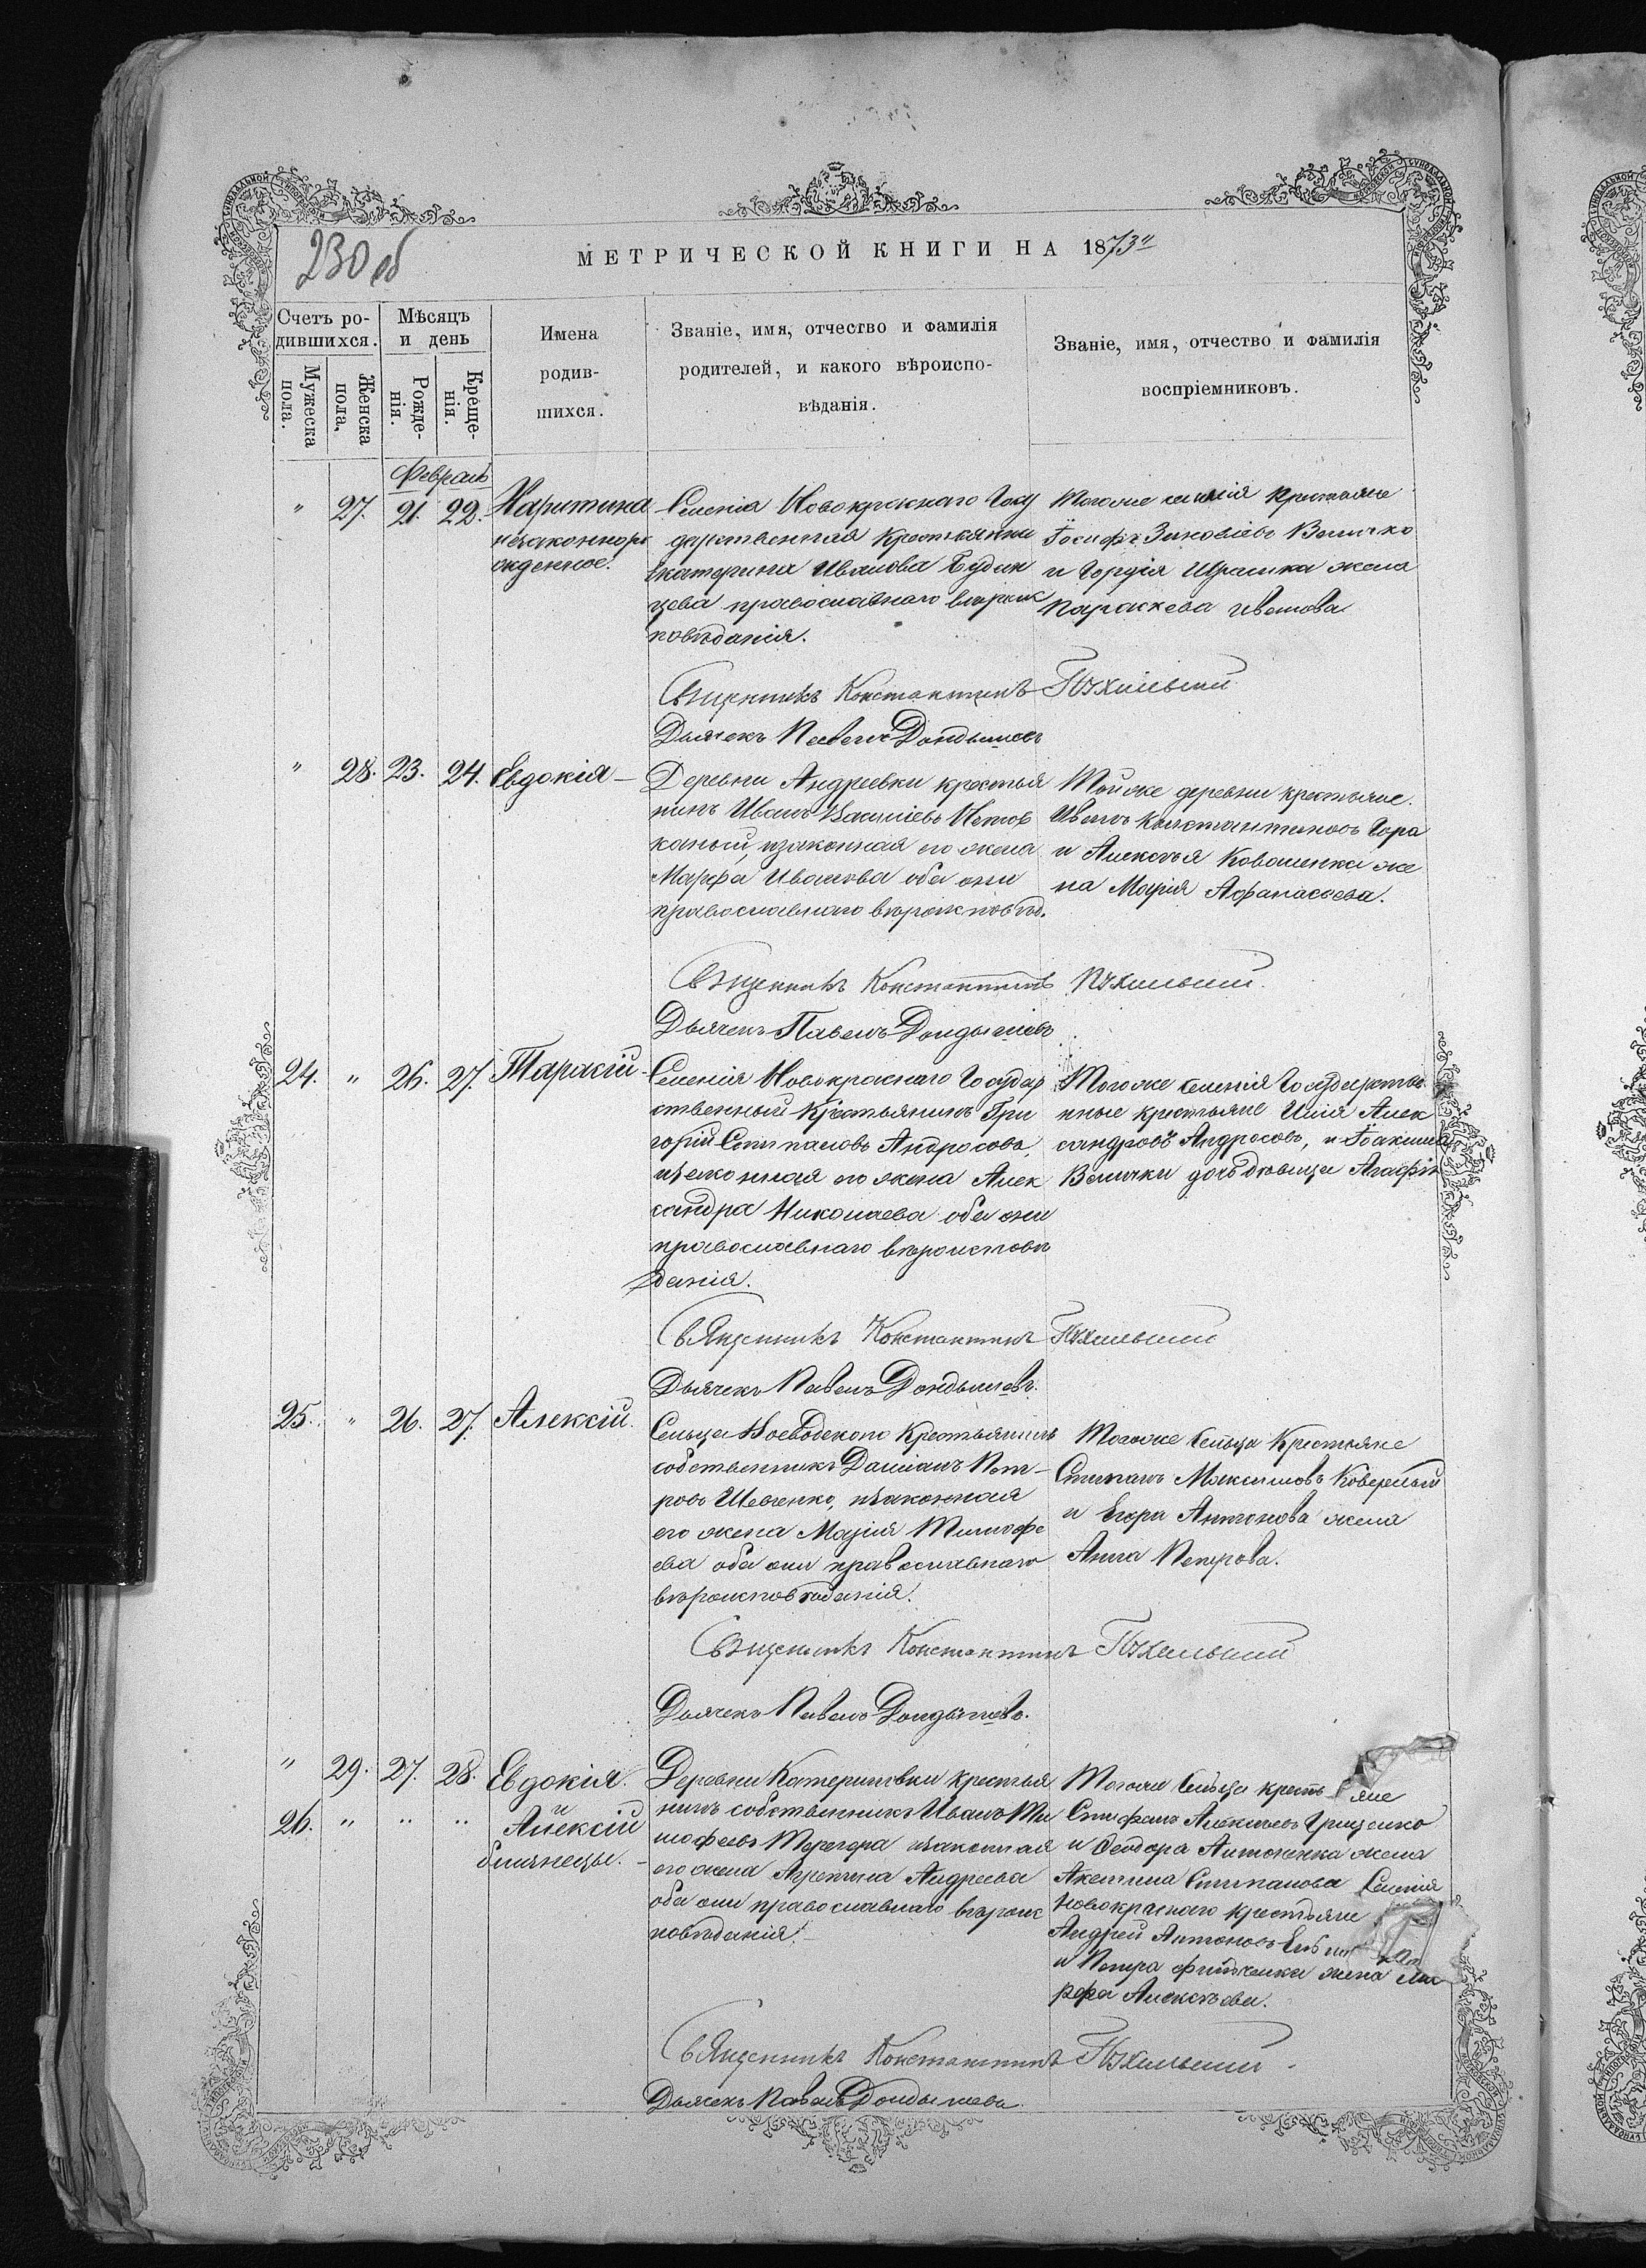 230 об
МЕТРИЧЕСКОЙ КНИГИ НА 1873
Счетъ ро-
дившихся.
Мужеска
пола.
Женска
пола.
Мѣсяцъ
и день
Рожде-
нія.
Креще-
нія.
Имена
родив-
шихся.
Званіе, имя, отчество и фамилія
родителей, и какого вѣроиспо-
вѣданія.
Званіе, имя, отчество и фамилія
воспріемниковъ.
Февраль
" 27. 21. 22. Харитина
незаконнорж
жденное.
Селенія Новокраснаго Госу
дарственная крестьянка
Екатерина Иванова
православнаго вѣроис
повѣданія.
Тогоже селенія крестьяне
Іосифъ Зиновіевъ Величко
и Гордія жена
Параскева Иванова
Священникъ Константинъ
Дьячекъ Павелъ
" 28. 23. 24. Евдокія
Деревни Андреевки крестья
нинъ Иванъ Василіевъ
изаконная его жена
Марфа Иванова оба они
православнаго вѣроисповѣд.
Тойже деревни крестьяне
Иванъ Константиновъ Гора
и Алексѣя Коваленка же
на Марія Афанасьева.
Священникъ Константинъ
Дьячекъ Павелъ
24. " 26. 27. Тарасій
Селенія Новокраснаго Государ
ственный крестьянинъ Гри
горій Степановъ Андросовъ,
изаконная его жена Алек
сандра Николаева оба они
православнаго вѣроисповѣ
данія.
Тогоже селенія Государстве
нные крестьяне Илія Алек
сандровъ Андросовъ, и Іоакима
Велички дочь дѣвица Агафія
Священникъ Константинъ
Дьячекъ Павелъ
25. " 26. 27. Алексій.
Сельца Воеводскаго Крестьянинъ
собственникъ Даміанъ Пет-
ровъ Шевченко, изаконная
его жена Марія Тимофе
ева оба они православнаго
вѣроисповѣданія.
Тогоже сельца Крестьяне
Стефанъ Максимовъ
и Егора Антонова жена
Анна Петрова.
Священникъ Константинъ
Дьячекъ Павелъ
" 29. 27. 28. Евдокія.
и
26. " " " Алексій
близнецы.
Деревни Катериновки крестья
нинъ собственникъ Иванъ Ти
мофеевъ изаконная
его жена Агрепина Андреева
оба они православнаго вѣроис
повѣданія.
Тогоже сельца крестьяне
Стефанъ Алексѣевъ Грищенко
и Ѳеодора Антоненка жена
Степанова Селенія
Новокраснаго крестьяне
Андрей Антоновъ
и Петра жена Ма
рфа Алексѣева.
Священникъ Константинъ
Дьячекъ Павелъ